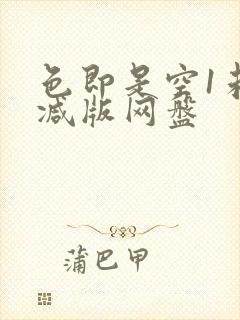 色即是空1未
减版网盘
蒲巴甲